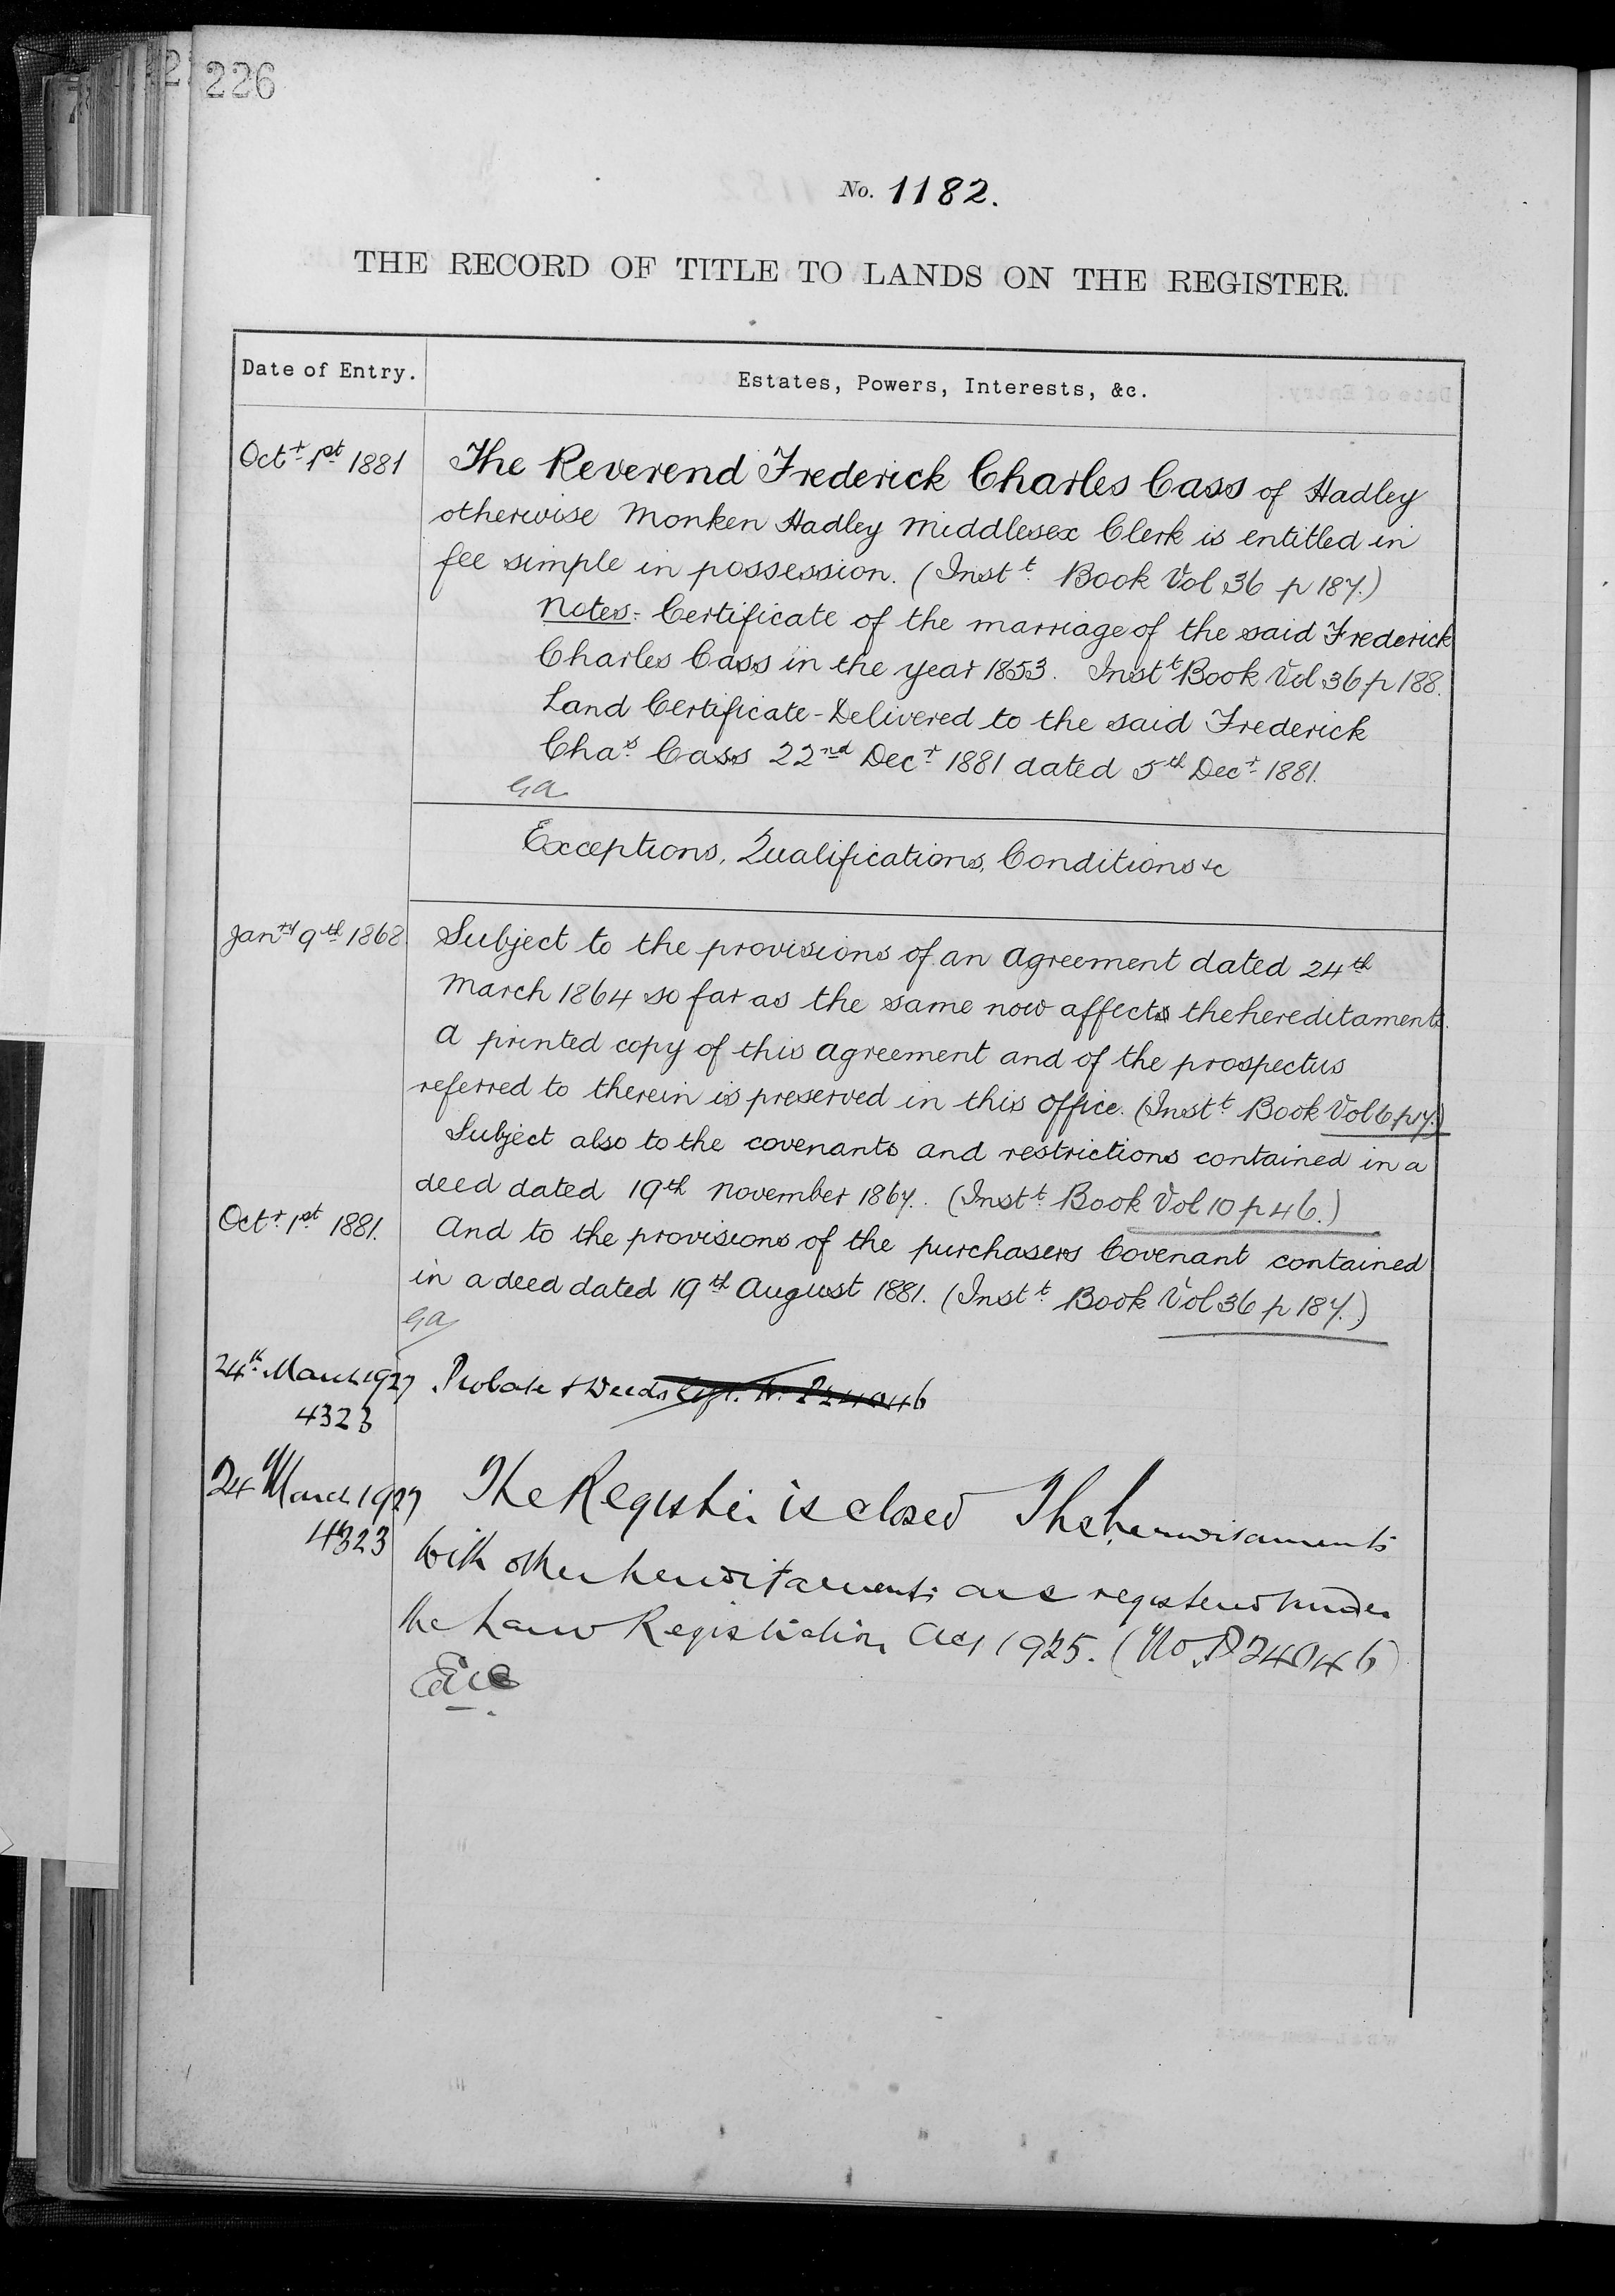 226
No. 1182.
THE RECORD OF TITLE TO LANDS ON THE REGISTER.
Date of Entry.
Estates, Powers, Interests, &c.
Octr 1st 1881
The Reverend Frederick Charles Cass of Hadley
otherwise Monken Hadley Middlesex Clerk is entitled in
fee simple in possession. (Instt Book Vol 36 p 187.)
Notes:- Certificate of the marriage of the said Frederick
Charles Cass in the year 1853. Instt Book Vol 36 p 188.
Land Certificate - Delivered to the said Frederick
Chas Cass 22nd Decr 1881 dated 5th Decr 1881.
Exceptions, Qualifications, Conditions &c
Janry 9th 1868
Subject to the provisions of an Agreement dated 24th
March 1864 so far as the same now affects the hereditaments.
A printed copy of this Agreement and of the prospectus
referred to therein is preserved in this Office. (Instt Book Vol 6 p 17.)
Subject also to the covenants and restrictions contained in a
deed dated 19th November 1867. (Instt Book Vol 10 p 46.)
Octr 1st 1881.
And to the provisions of the purchasers Covenant contained
in a deed dated 19th August 1881. (Instt Book Vol 36 p 187.)
24th March 1927
4323
Probate & Deeds P24046
24 March 1927
4323
The Register is closed The hereditaments
with other hereditaments are registered under
the Land Registration Act 1925. (No P24046)